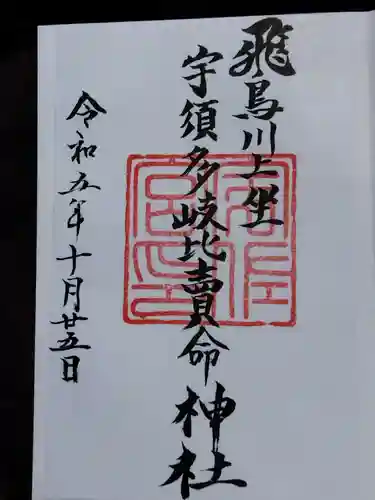 飛鳥川上坐
宇須多岐比賣命神社
令和五年十月廿五日